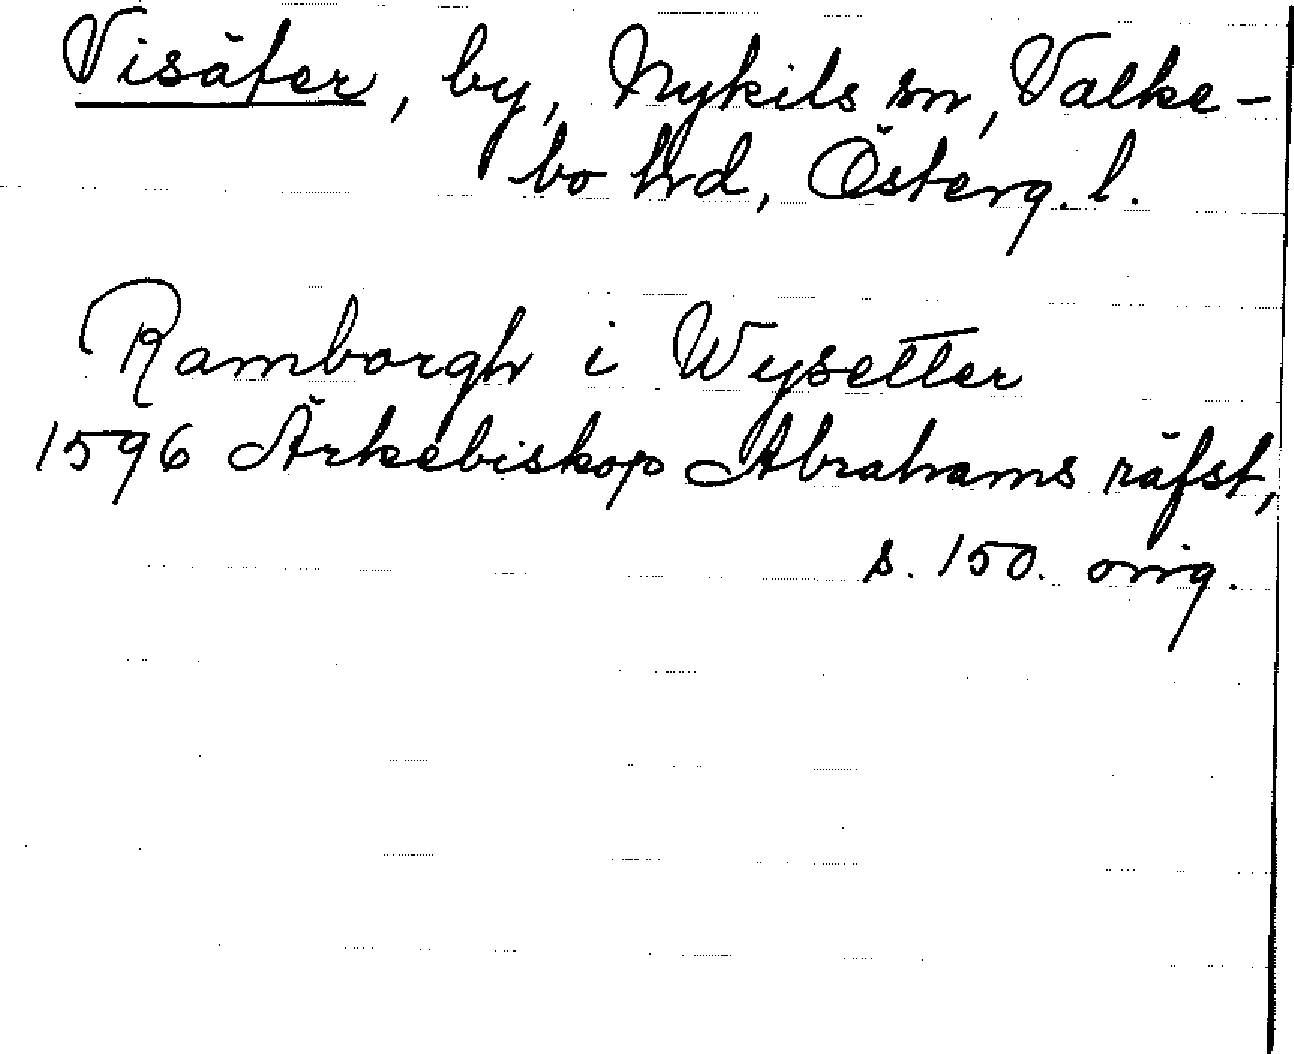 Visäter, by, Nykils sn, Valke-
bo hrd, Österg. l.
Ramborgh i Wysetter
1596 Ärkebiskop Abrahams räfst,
s. 150. orig.